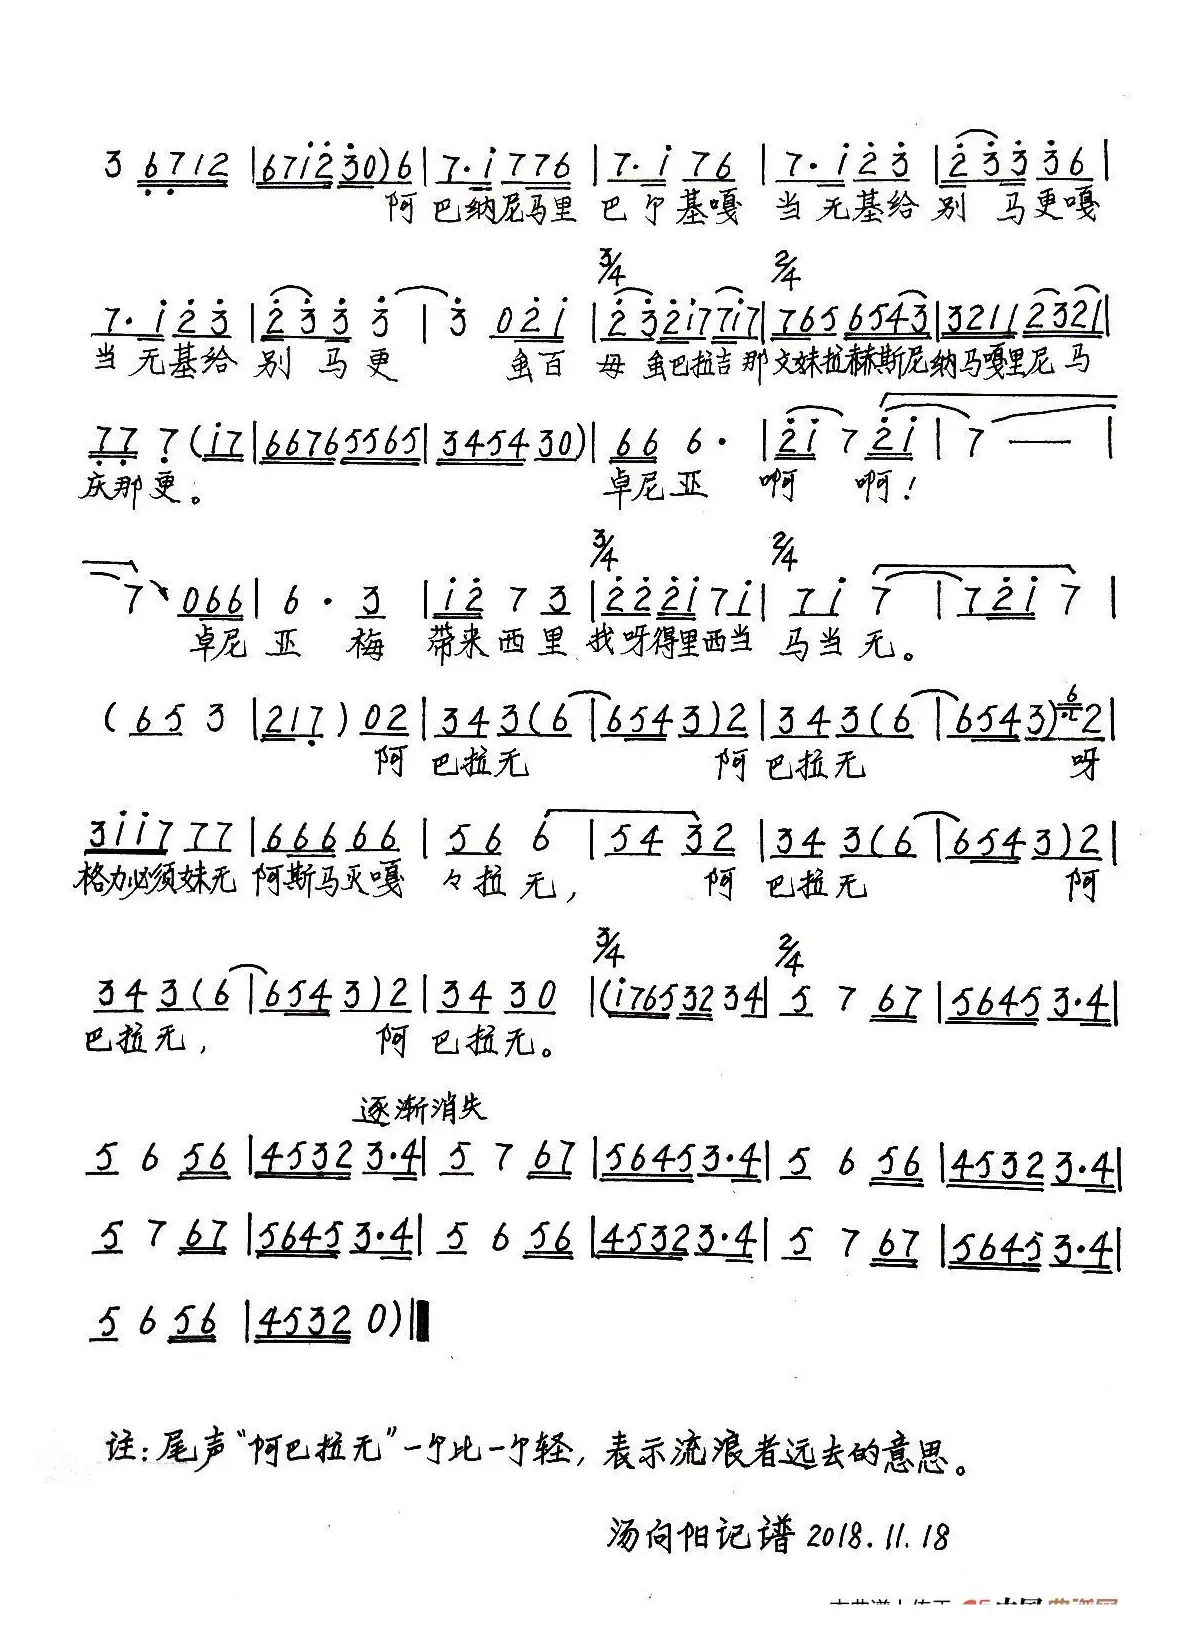 3 6712 | 6712 30) 6 | 7·1 776 | 7·1 76 | 7·1 2 3 | 2 3 3 3 6 |
阿 巴纳尼马里 巴个基嘎 当无基给 别 马更嘎
3/4 2/4
7·1 2 3 | 2 3 3 3 | 3 0 2 1 | 2 3 2 1 7 7 1 7 | 765 6543 | 3211 2321 |
当无基给 别 马更 虽百 母虽巴拉吉那 文妹拉赫斯尼纳马嘎里尼马
7 7 7 (17 | 6676 5565 | 3454 30) | 66 6· | 21 7 21 | 7 — |
庆那更。 卓尼亚 啊 啊!
3/4 2/4
7 066 | 6· 3 | 12 7 3 | 2 2 2 1 7 1 | 7 1 7 | 7 2 1 7 |
卓尼 亚 梅 带来西里 找呀得里西当 马当无。
(65 3 | 217) 02 | 34 3(6 | 654 3) 2 | 34 3(6 | 654 3) 2 |
阿 巴拉无 阿 巴拉无 呀
3117 77 | 666 66 | 5 6 6 | 54 32 | 34 3(6 | 654 3) 2 |
格力必须妹无 阿斯马灭嘎 々拉无, 阿 巴拉无 阿
3/4 2/4
34 3(6 | 654 3) 2 | 34 30 | (1765 32 34 | 5 7 67 | 5645 3·4 |
巴拉无, 阿 巴拉无。
逐渐消失
5 6 56 | 4532 3·4 | 5 7 67 | 5645 3·4 | 5 6 56 | 4532 3·4 |
5 7 67 | 5645 3·4 | 5 6 56 | 4532 3·4 | 5 7 67 | 5645 3·4 |
5 6 56 | 4532 0) ‖
注:尾声“阿巴拉无”一个比一个轻,表示流浪者远去的意思。
汤向阳记谱 2018.11.18